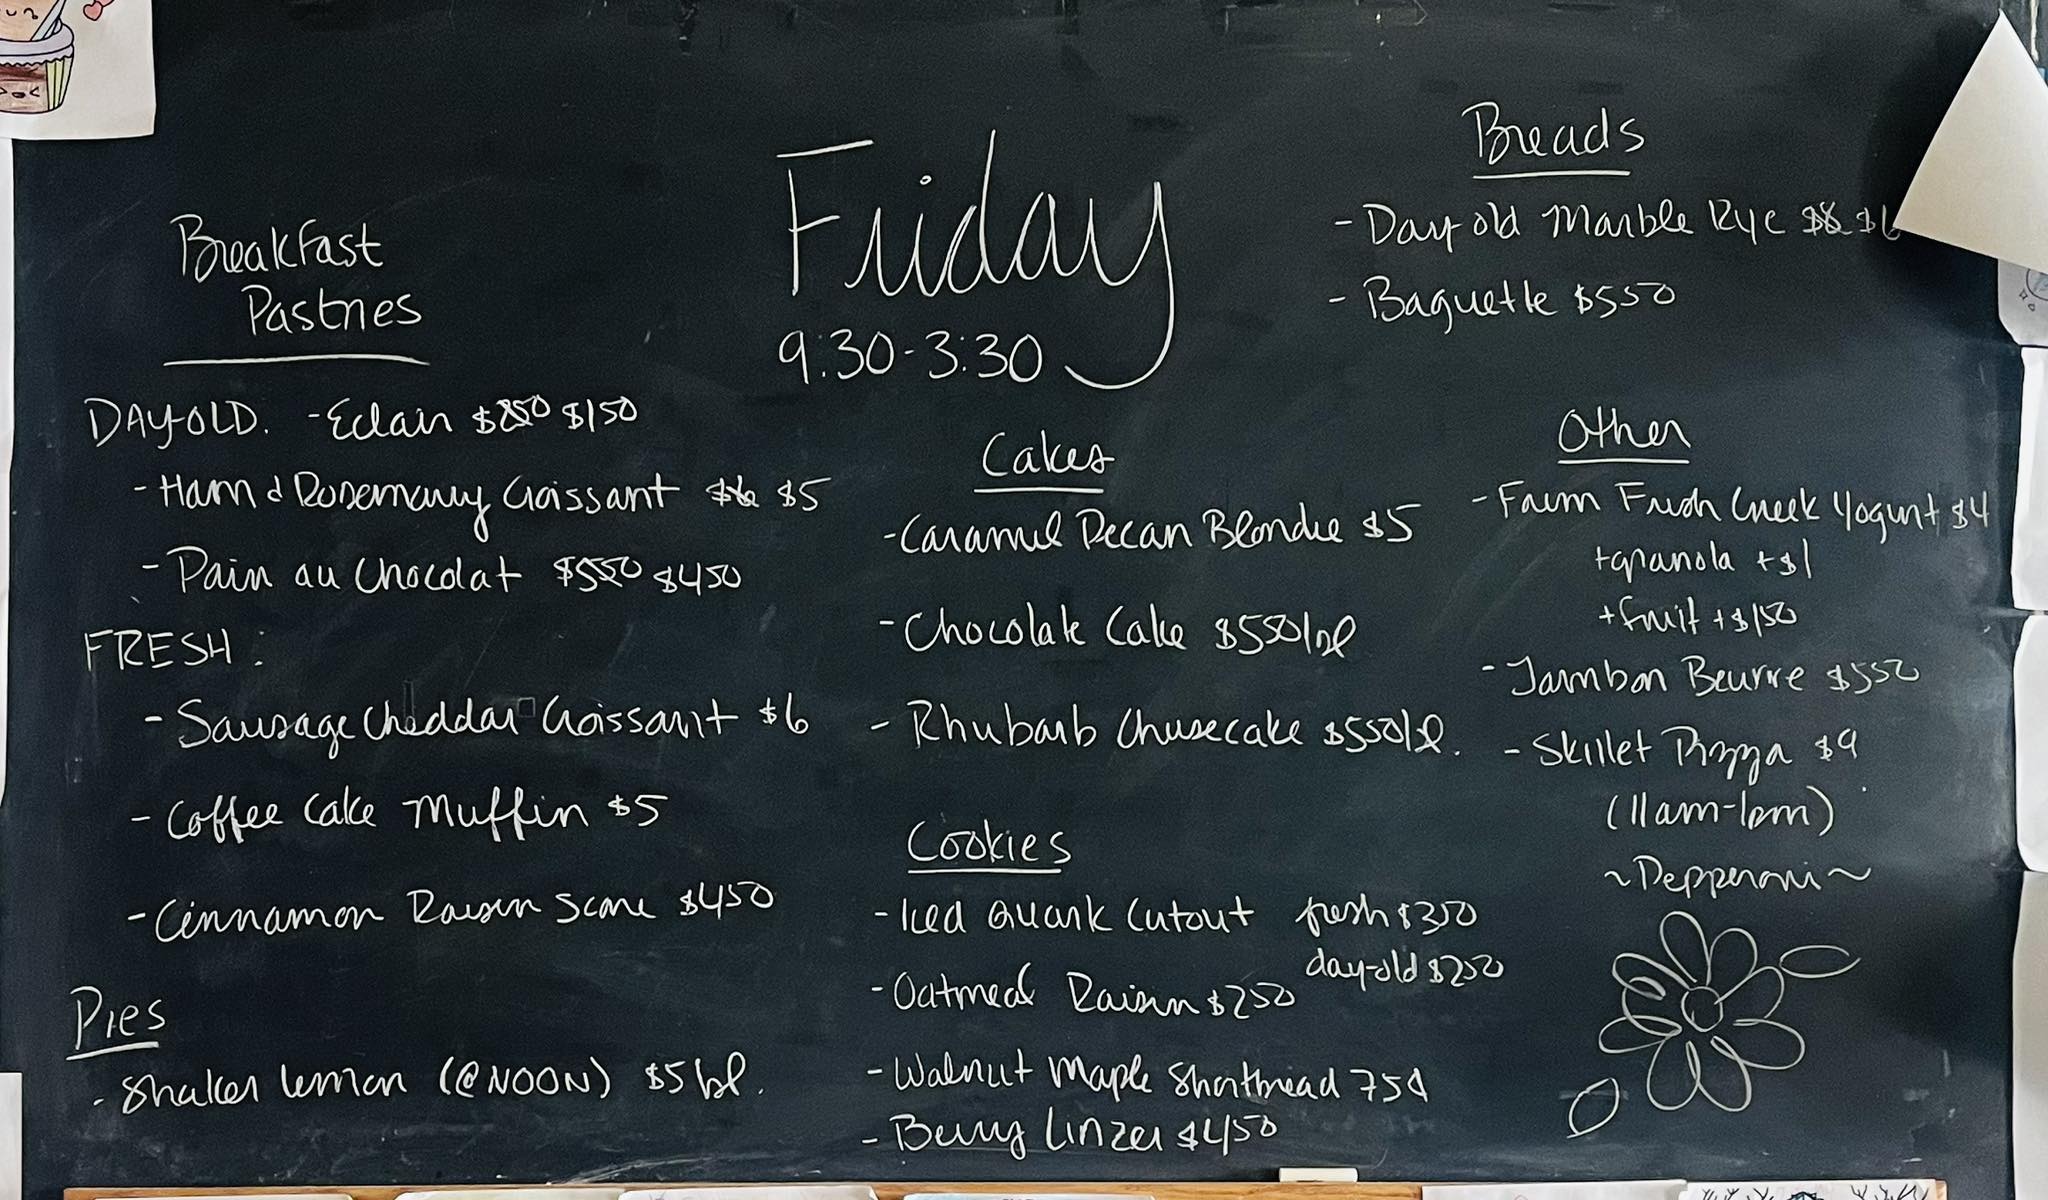 Friday
9:30-3:30
Breakfast
Pastries
DAY-OLD. -Eclair $250 $150
-Ham & Rosemary Croissant $6 $5
-Pain au Chocolat $550 $450
FRESH:
-Sausage Cheddar Croissant $6
-Coffee Cake Muffin $5
-Cinnamon Raisin Scone $450
Pies
-Shaker Lemon (@NOON) $5/sl.
Cakes
-Caramel Pecan Blondie $5
-Chocolate Cake $550/sl
-Rhubarb Cheesecake $550/sl.
Cookies
-Iced Quark Cutout fresh $350
day-old $250
-Oatmeal Raisin $250
-Walnut Maple Shortbread 75¢
-Berry Linzer $450
Breads
-Day-old Marble Rye $8 $6
-Baguette $550
Other
-Farm Fresh Greek Yogurt $4
+granola +$1
+fruit +$150
-Jambon Beurre $550
-Skillet Pizza $9
(11am-1pm)
~Pepperoni~